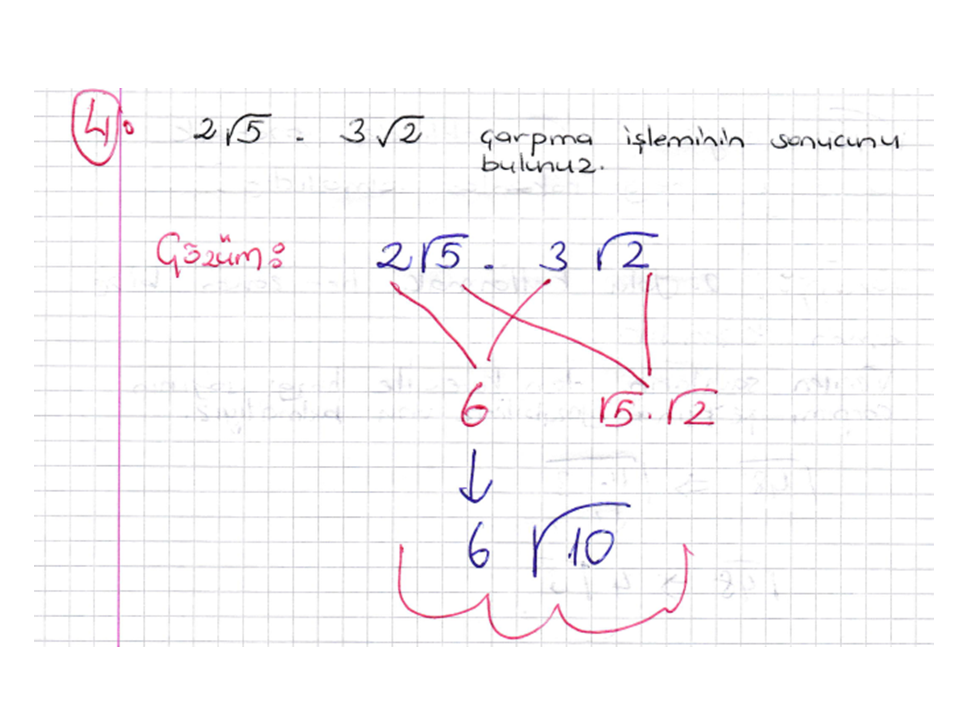 4: 2√5 . 3√2 çarpma işleminin sonucunu
bulunuz.
Çözüm: 2√5 . 3√2
6 √5.√2
↓
6 √10